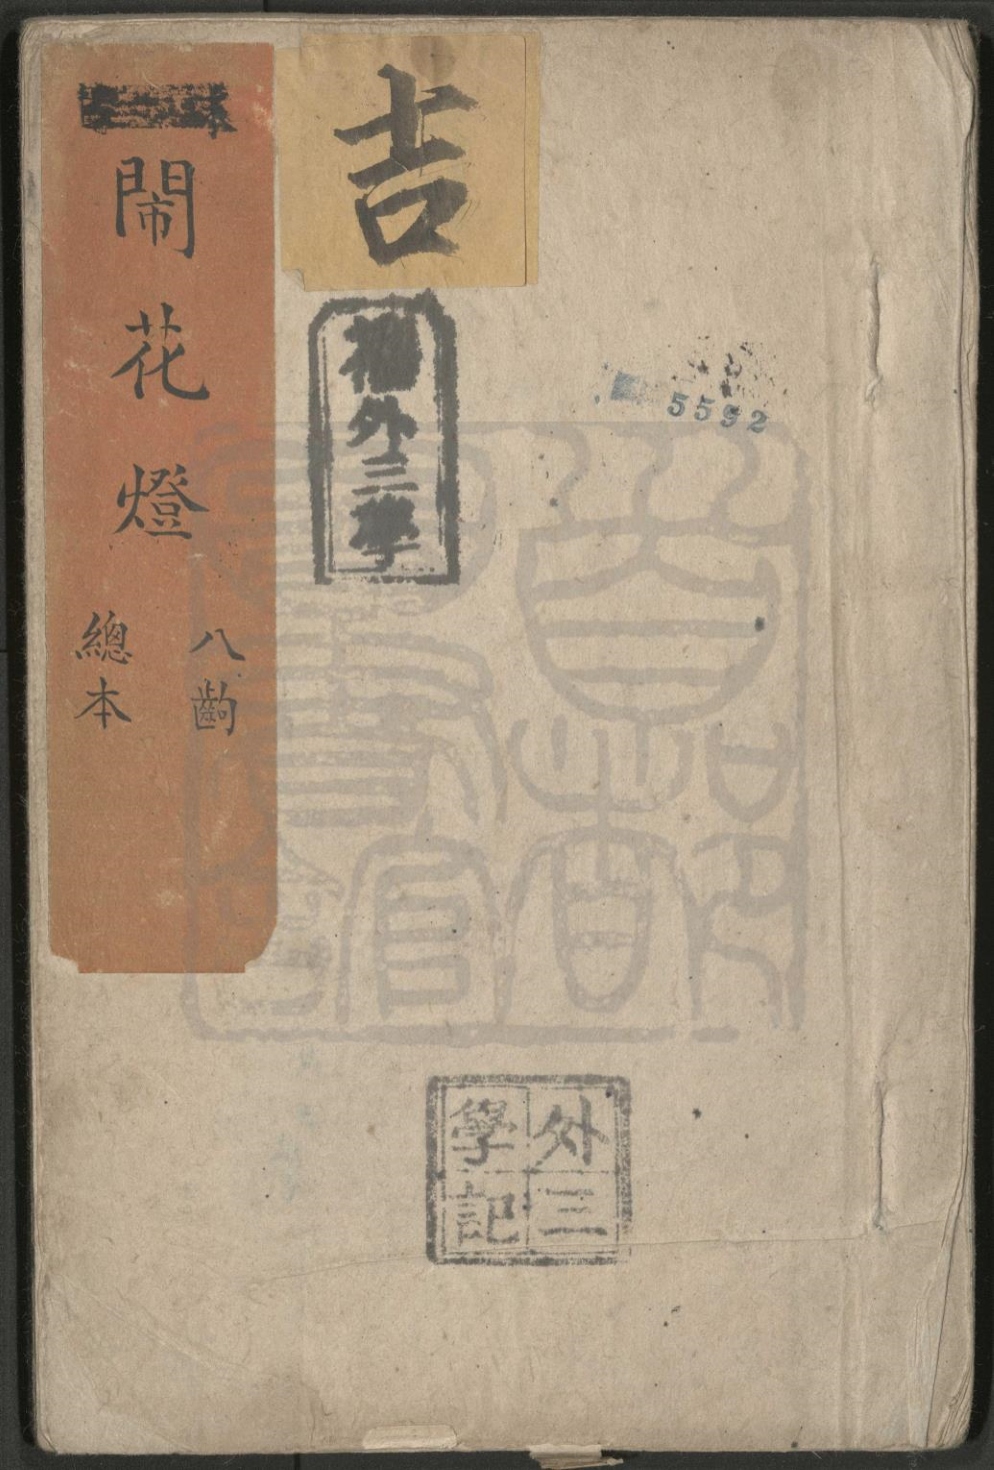 吉
外三學
5592
鬧花燈
八齣
總本
外三
學記